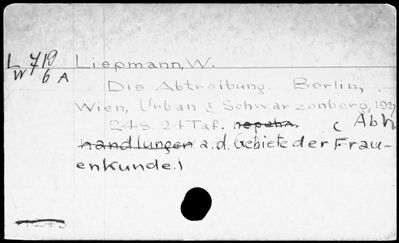 L 719 Liepmann, W.
W 6 A
Die Abtreibung. Berlin,
Wien, Urban & Schwarzenberg, 1927
24 S. 24 Taf. ( Abh
handlungen a.d. Gebiete der Frau-
enkunde.)